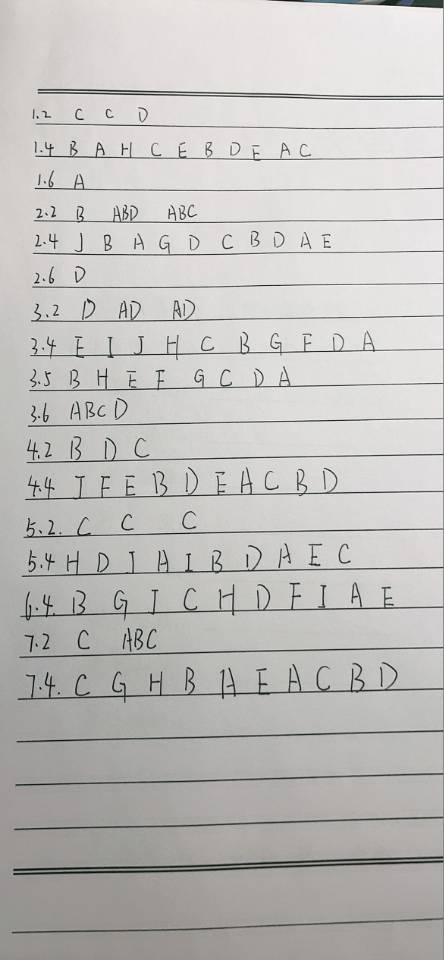 1.2 C C D
1.4 B A H C E B D E A C
1.6 A
2.2 B ABD ABC
2.4 J B A G D C B D A E
2.6 D
3.2 D AD AD
3.4 E I J H C B G F D A
3.5 B H E F G C D A
3.6 ABCD
4.2 B D C
4.4 J F E B D E A C B D
5.2. C C C
5.4 H D J A I B D A E C
6.4. B G J C H D F I A E
7.2 C ABC
7.4. C G H B A E A C B D